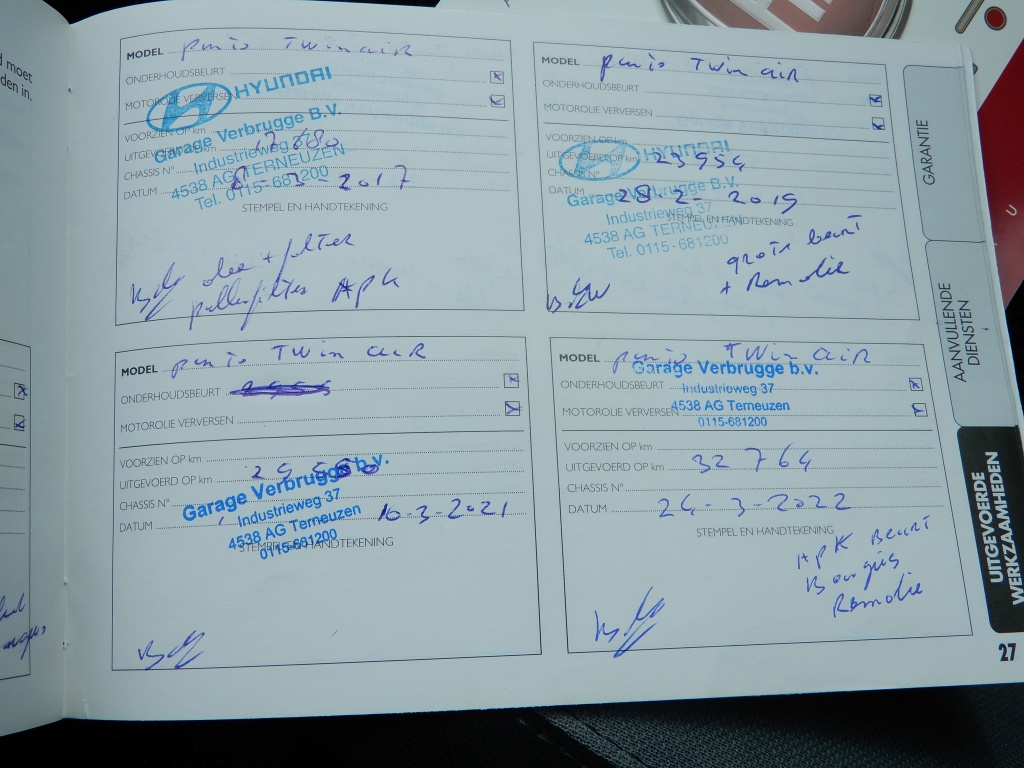 d moet
den in.
MODEL punto Twin air
ONDERHOUDSBEURT
MOTOROLIE VERVERSEN
HYUNDAI
VOORZIEN OP km
Garage Verbrugge B.V.
UITGEVOERD OP km
Industrieweg 37
CHASSIS N°
4538 AG TERNEUZEN
DATUM 8-3-2017
Tel. 0115-681200
STEMPEL EN HANDTEKENING
olie + filter
pollenfilter APK
MODEL punto Twin air
ONDERHOUDSBEURT
MOTOROLIE VERVERSEN
VOORZIEN OP km
HYUNDAI
UITGEVOERD OP km 23954
CHASSIS N°
DATUM 28-2-2019
Garage Verbrugge B.V.
Industrieweg 37
STEMPEL EN HANDTEKENING
4538 AG TERNEUZEN
Tel. 0115-681200
grote beurt
+ Remolie
MODEL punto Twin air
ONDERHOUDSBEURT
MOTOROLIE VERVERSEN
VOORZIEN OP km
UITGEVOERD OP km
Garage Verbrugge b.v.
CHASSIS N°
Industrieweg 37
DATUM 10-3-2021
4538 AG Terneuzen
0115-681200
STEMPEL EN HANDTEKENING
MODEL punto Twin air
Garage Verbrugge b.v.
ONDERHOUDSBEURT
Industrieweg 37
MOTOROLIE VERVERSEN
4538 AG Terneuzen
0115-681200
VOORZIEN OP km
UITGEVOERD OP km 32764
CHASSIS N°
DATUM 24-3-2022
STEMPEL EN HANDTEKENING
APK Beurt
Bougies
Remolie
GARANTIE
AANVULLENDE
DIENSTEN
UITGEVOERDE
WERKZAAMHEDEN
27